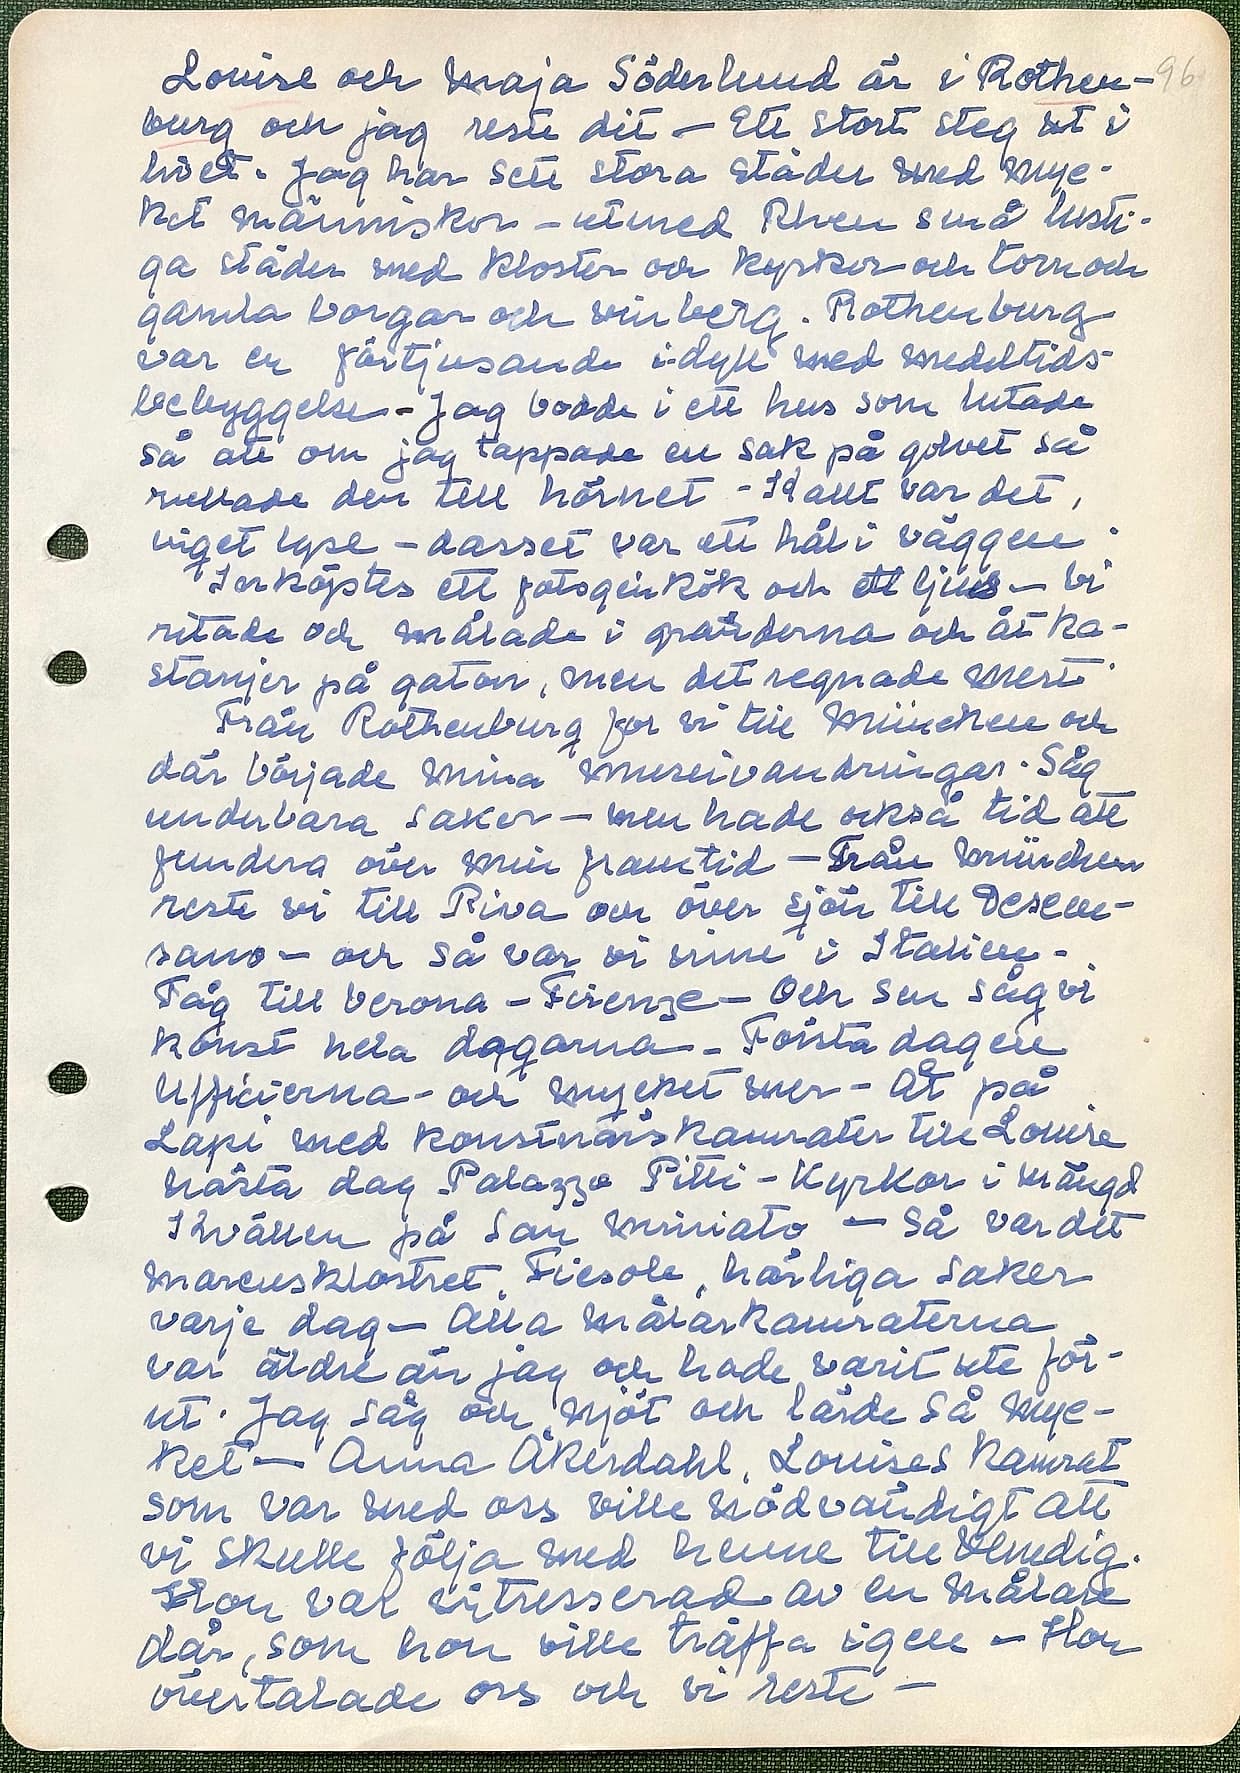 96
Louise och Maja Söderlund är i Rothen-
burg och jag reste dit – Ett stort steg ut i
livet. Jag har sett stora städer med myc-
ket människor – utmed Rhen små lusti-
ga städer med kloster och kyrkor och torn och
gamla borgar och vinberg. Rothenburg
var en förtjusande idyll med medeltids-
bebyggelse – Jag bodde i ett hus som lutade
så att om jag tappade en sak på golvet så
rullade den till hörnet – Kallt var det,
inget lyse – dasset var ett hål i väggen.
Inköptes ett fotogenkök och ett ljus – Vi
ritade och målade i gränderna och åt ka-
stanjer på gatan, men det regnade mest.
Från Rothenburg for vi till München och
där började mina museivandringar. Såg
underbara saker – men hade också tid att
fundera över min framtid – Från München
reste vi till Riva och över sjön till Desen-
sano – och så var vi inne i Italien –
Tåg till Verona – Firenze – Och sen såg vi
konst hela dagarna – Första dagen
Ufficierna – och mycket mer – Åt på
Lapi med konstnärskamrater till Louise
Nästa dag Palazzo Pitti – Kyrkor i mängd
Ikvällen på San Miniato – Så var det
Marcusklostret, Fiesole, härliga saker
varje dag – Alla målarkamraterna
var äldre än jag och hade varit ute för-
ut. Jag såg och njöt och lärde så myc-
ket – Anna Åkerdahl, Louises kamrat
som var med oss ville nödvändigt att
vi skulle följa med henne till Venedig.
Hon var intresserad av en målare
där, som hon ville träffa igen – Hon
övertalade oss och vi reste –